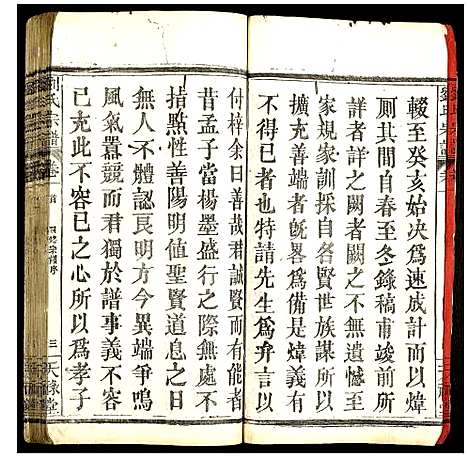 輟至癸亥始决爲速成計而以煒
厠其間自春至冬錄稿甫竣前所
詳者詳之闕者闕之不無遺憾至
家規家訓採自各賢世族諸所以
擴充善端者旣畧爲備是煒義有
不得已者也特請先生爲弁言以
付梓余曰善哉君誠賢而有能者
昔孟子當楊墨盛行之際無處不
指點性善陽明值聖賢道息之日
無人不體認良明方今異端爭鳴
風氣囂競而君獨於譜事義不容
已充此不容已之心所以爲孝子
劉氏宗譜
卷一
首
三
天祿堂